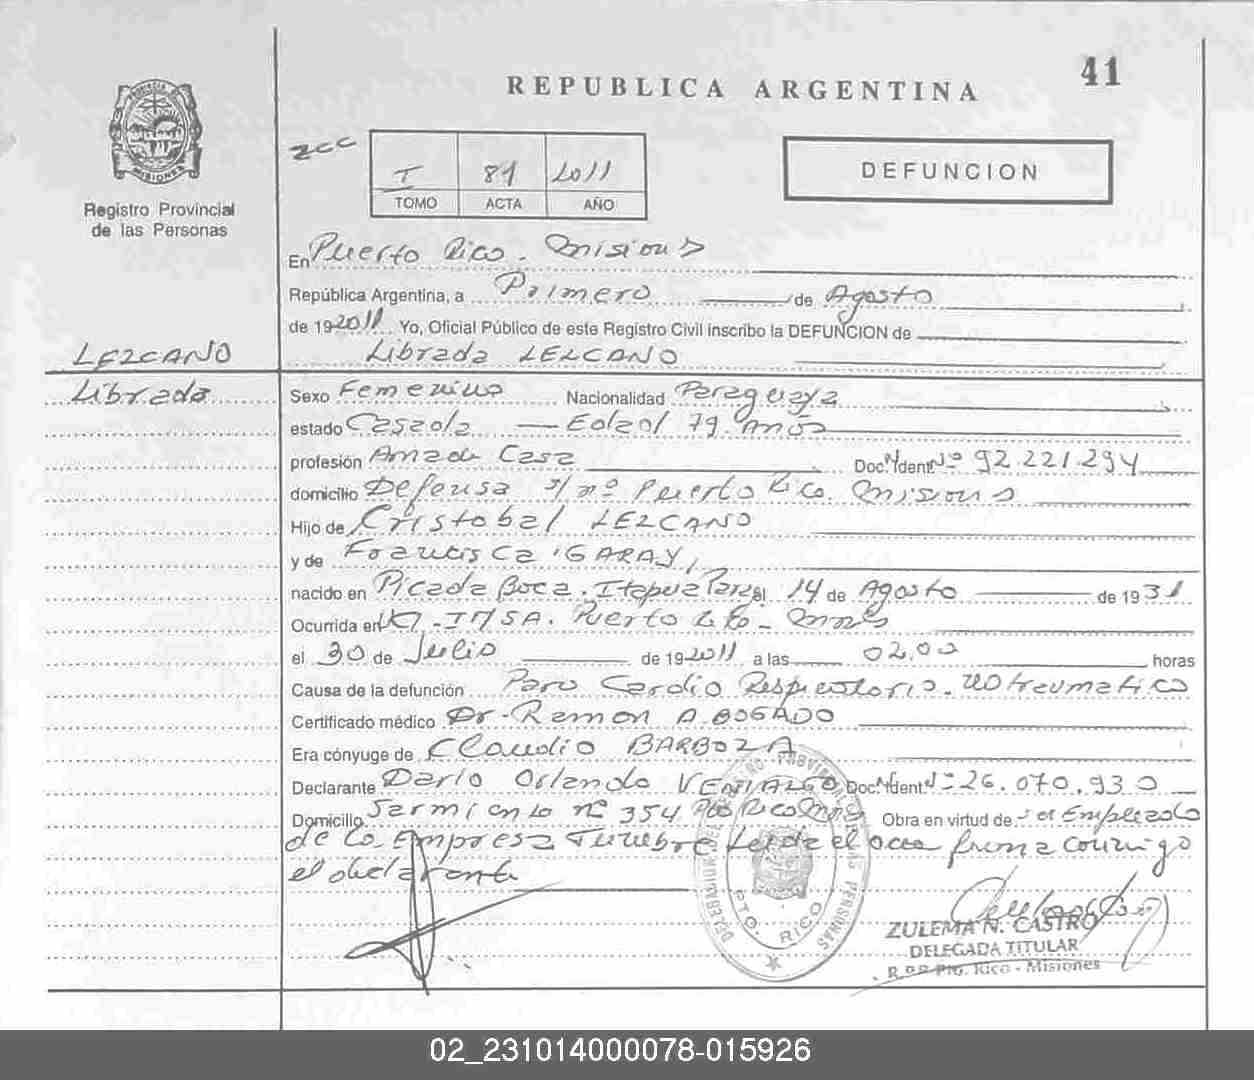 41
REPUBLICA ARGENTINA
DEFUNCION
MISIONES
Registro Provincial
de las Personas
I 81 2011
TOMO ACTA AÑO
En Puerto Rico. Misiones
República Argentina, a Primero de Agosto
de 192011 Yo, Oficial Público de este Registro Civil inscribo la DEFUNCION de
LEZCANO
Librada LEZCANO
Librada
Sexo Femenino Nacionalidad Paraguaya
estado Casada Edad 79 Años
profesión Ama de Casa Doc. Ident Nº 92.221.294
domicilio Defensa s/nº Puerto Rico. Misiones
Hijo de Cristobal LEZCANO
y de Francisca GARAY
nacido en Picada Boca. Itapua Parag el 14 de Agosto de 1931
Ocurrida en Puerto Rico - Mnes
el 30 de Julio de 192011 a las 02,00 horas
Causa de la defunción Paro Cardio Respiratorio. no traumatico
Certificado médico Dr. Ramon A. BOGADO
Era cónyuge de Claudio BARBOZA
Declarante Dario Orlando VENIALGO Doc. Ident Nº 26.070.930
Domicilio Sarmiento nº 354 Pto Rico Mnes Obra en virtud de ser Empleado
de la Empresa Funebre Leida el acta firma conmigo
el declarante
DELEGACION DEL REGISTRO PROVINCIAL DE LAS PERSONAS
PTO. RICO
ZULEMA N. CASTRO
DELEGADA TITULAR
R.P.P. Pto. Rico - Misiones
02_231014000078-015926